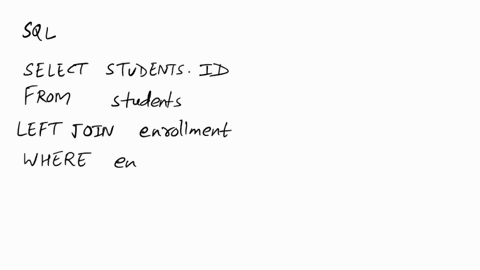 SQL
SELECT STUDENTS. ID
FROM students
LEFT JOIN enrollment
WHERE en